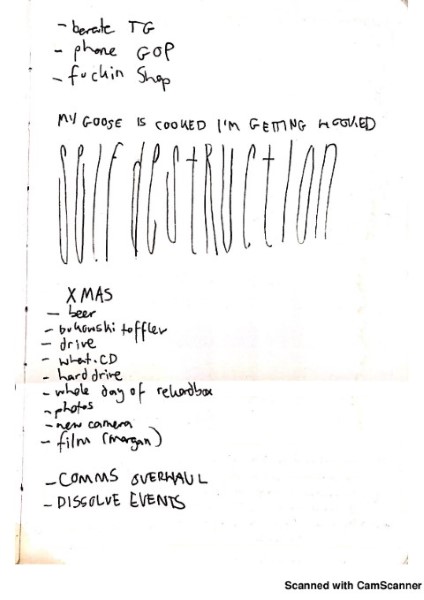 - berate TG
- phone GOP
- fuckin Shop
MY GOOSE IS COOKED I'M GETTING HOOKED
SELF DESTRUCTION
XMAS
- beer
- bukowski toffler
- drive
- what.CD
- hard drive
- whole day of rekordbox
- photos
- new camera
- film (morgan)
- COMMS OVERHAUL
- DISSOLVE EVENTS
Scanned with CamScanner